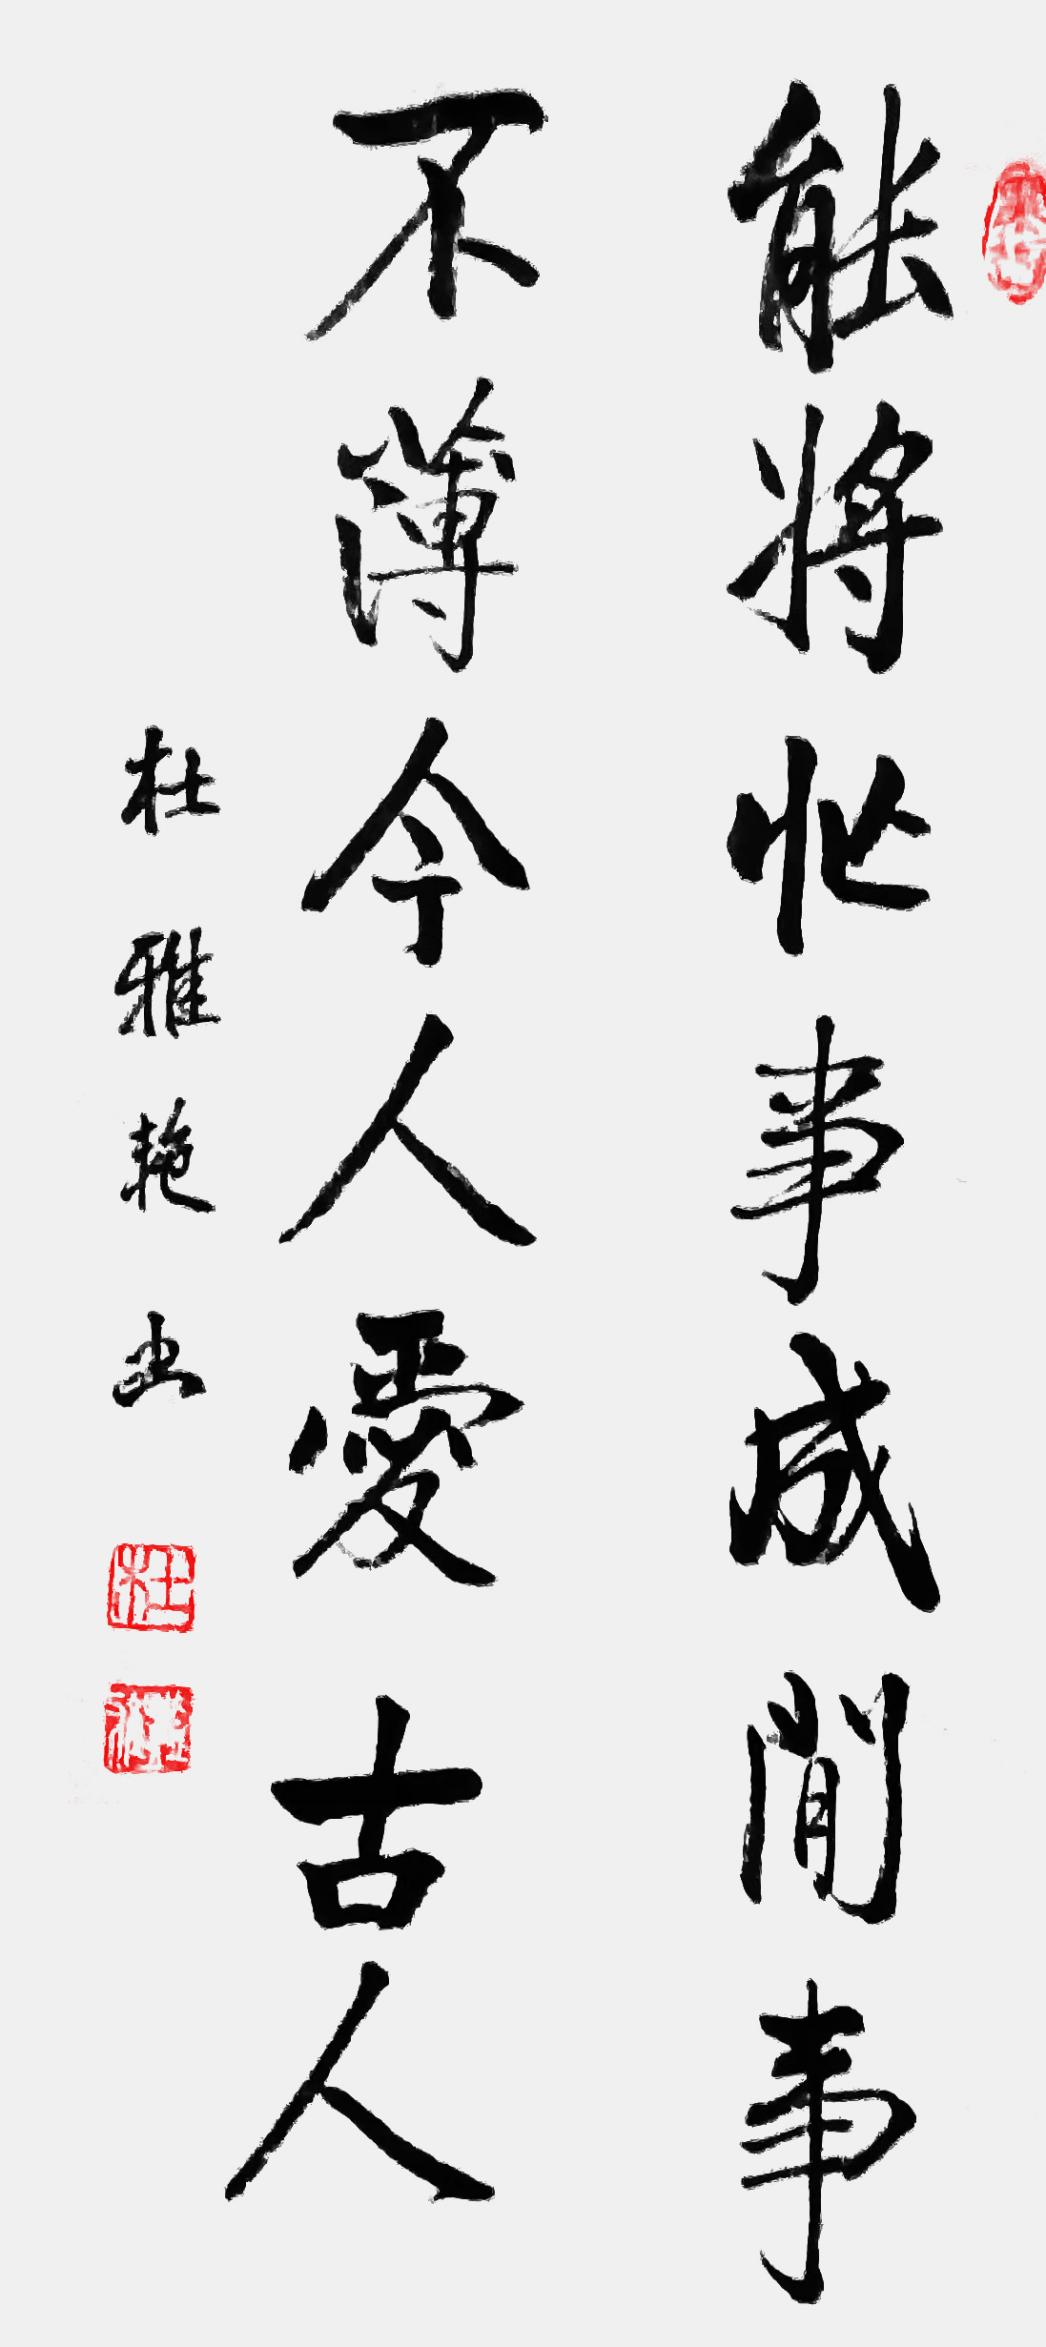 能將忙事成閒事
不薄今人愛古人
杜雅艳书
杜